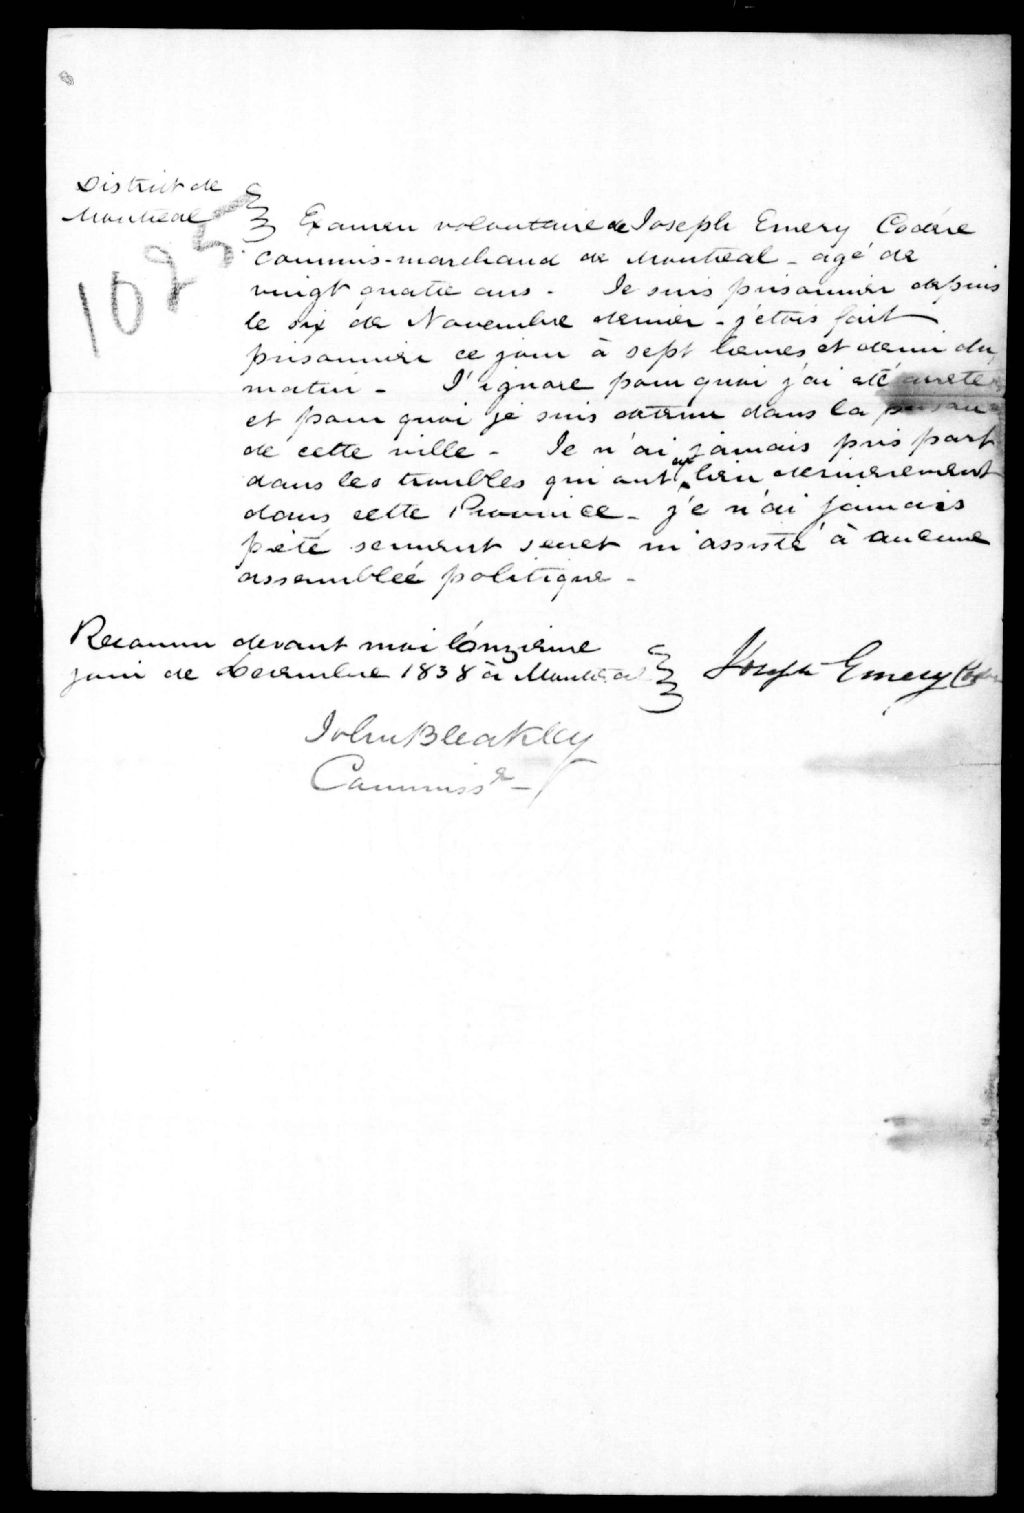 District de
Montreal
1025
Examen volontaire de Joseph Emery Codére
commis-marchand de Montreal - agé de
vingt quatre ans - Je suis prisonnier depuis
le six de Novembre dernier - j'etois fait
prisonnier ce jour à sept heures et demi du
matin - J'ignore pourquoi j'ai eté arreté
et pourquoi je suis detenu dans la prison
de cette ville - Je n'ai jamais pris part
dans les troubles qui ont eu lieu dernierement
dans cette Province - je n'ai jamais
preté serment secret ni assisté à aucune
assembleé politique -
Reconnu devant moi l'onzieme
jour de Decembre 1838 à Montreal
Joseph Emery
John Bleakley
Commissr -